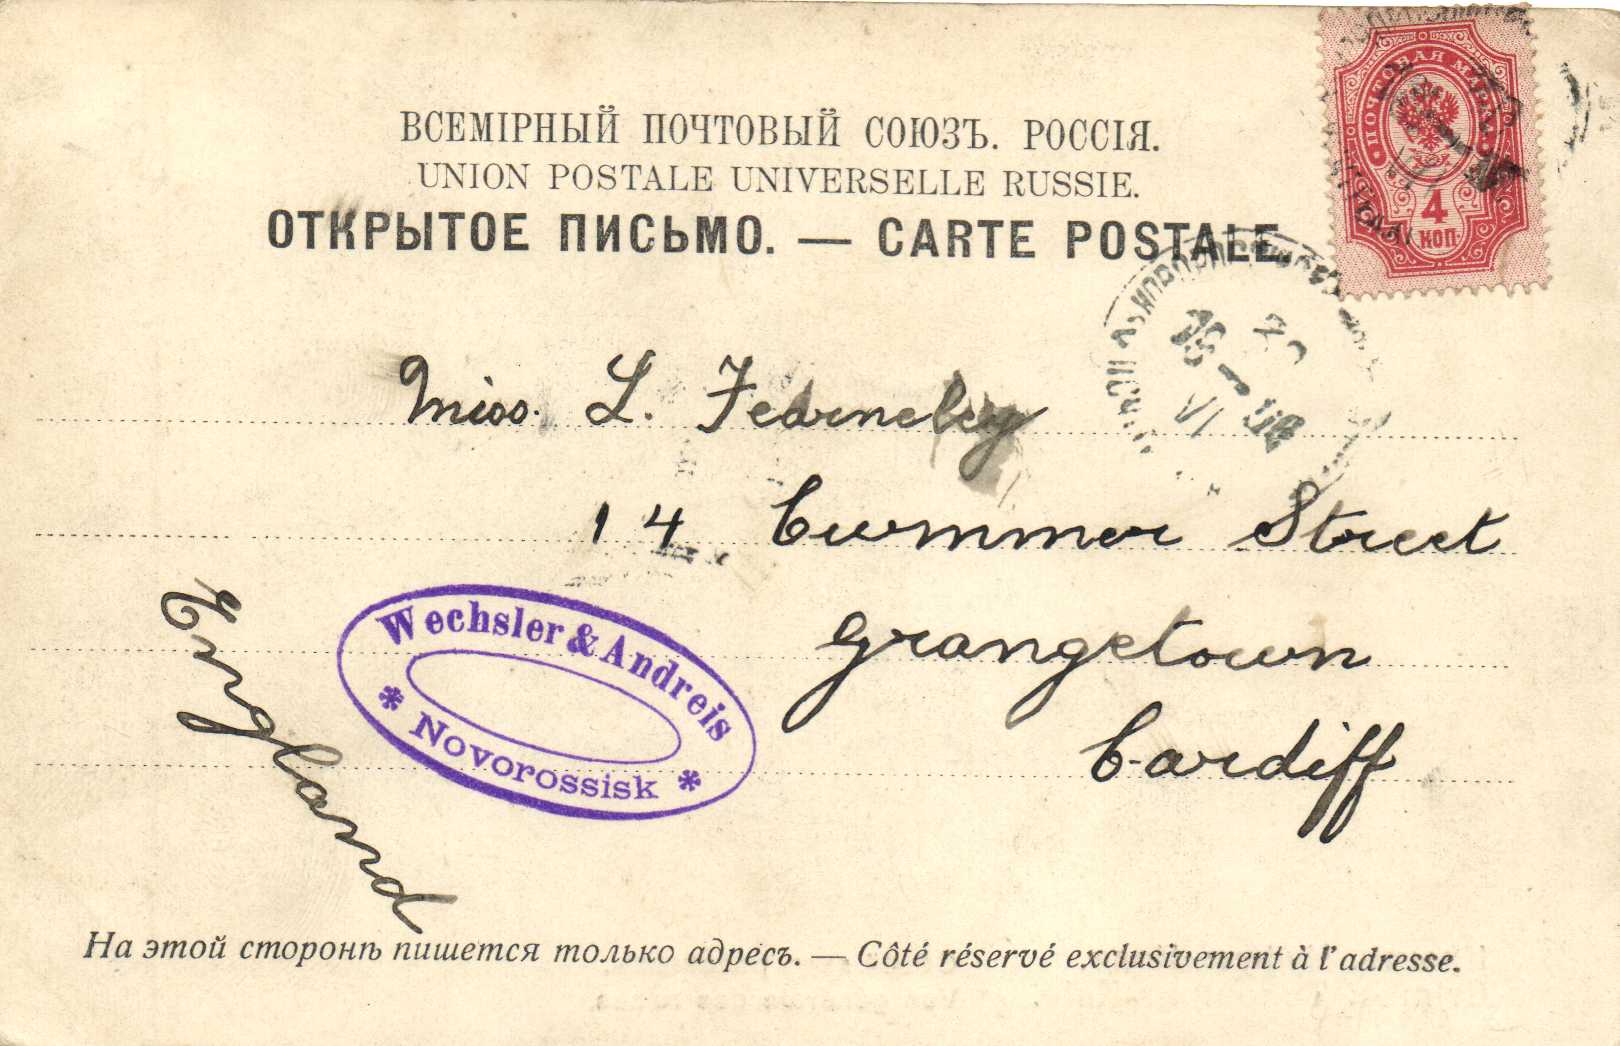 ВСЕМІРНЫЙ ПОЧТОВЫЙ СОЮЗЪ. РОССІЯ.
UNION POSTALE UNIVERSELLE RUSSIE.
ОТКРЫТОЕ ПИСЬМО. — CARTE POSTALE.
ПОЧТОВАЯ МАРКА
4
КОП.
Miss. L. Fearneley
14 Cummer Street
Grangetown
Cardiff
England
Wechsler & Andreis
* Novorossisk *
На этой сторонѣ пишется только адресъ. — Côté réservé exclusivement à l'adresse.